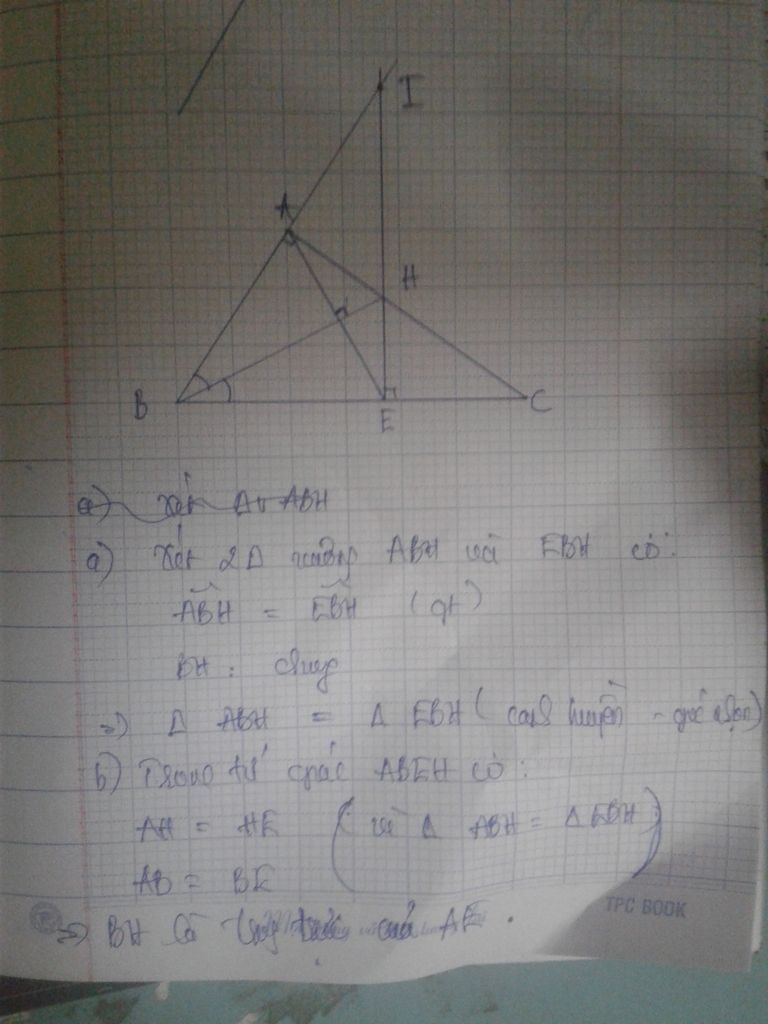 I
A
H
B
E
C
a) Xét Δv ABH
a) Xét 2Δ vuông ABH và EBH có:
ABH = EBH (gt)
BH: chung
=> Δ ABH = Δ EBH (cạnh huyền - góc nhọn)
b) Trong tứ giác ABEH có:
AH = HE (vì Δ ABH = Δ EBH)
AB = BE
=> BH là trung trực của AE.
TPC BOOK